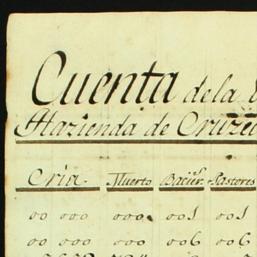 Cuenta dela
Hazienda de Cruze
Cria Muerto Bacier Pastores
00 000 000 001 001
00 000 000 006 006